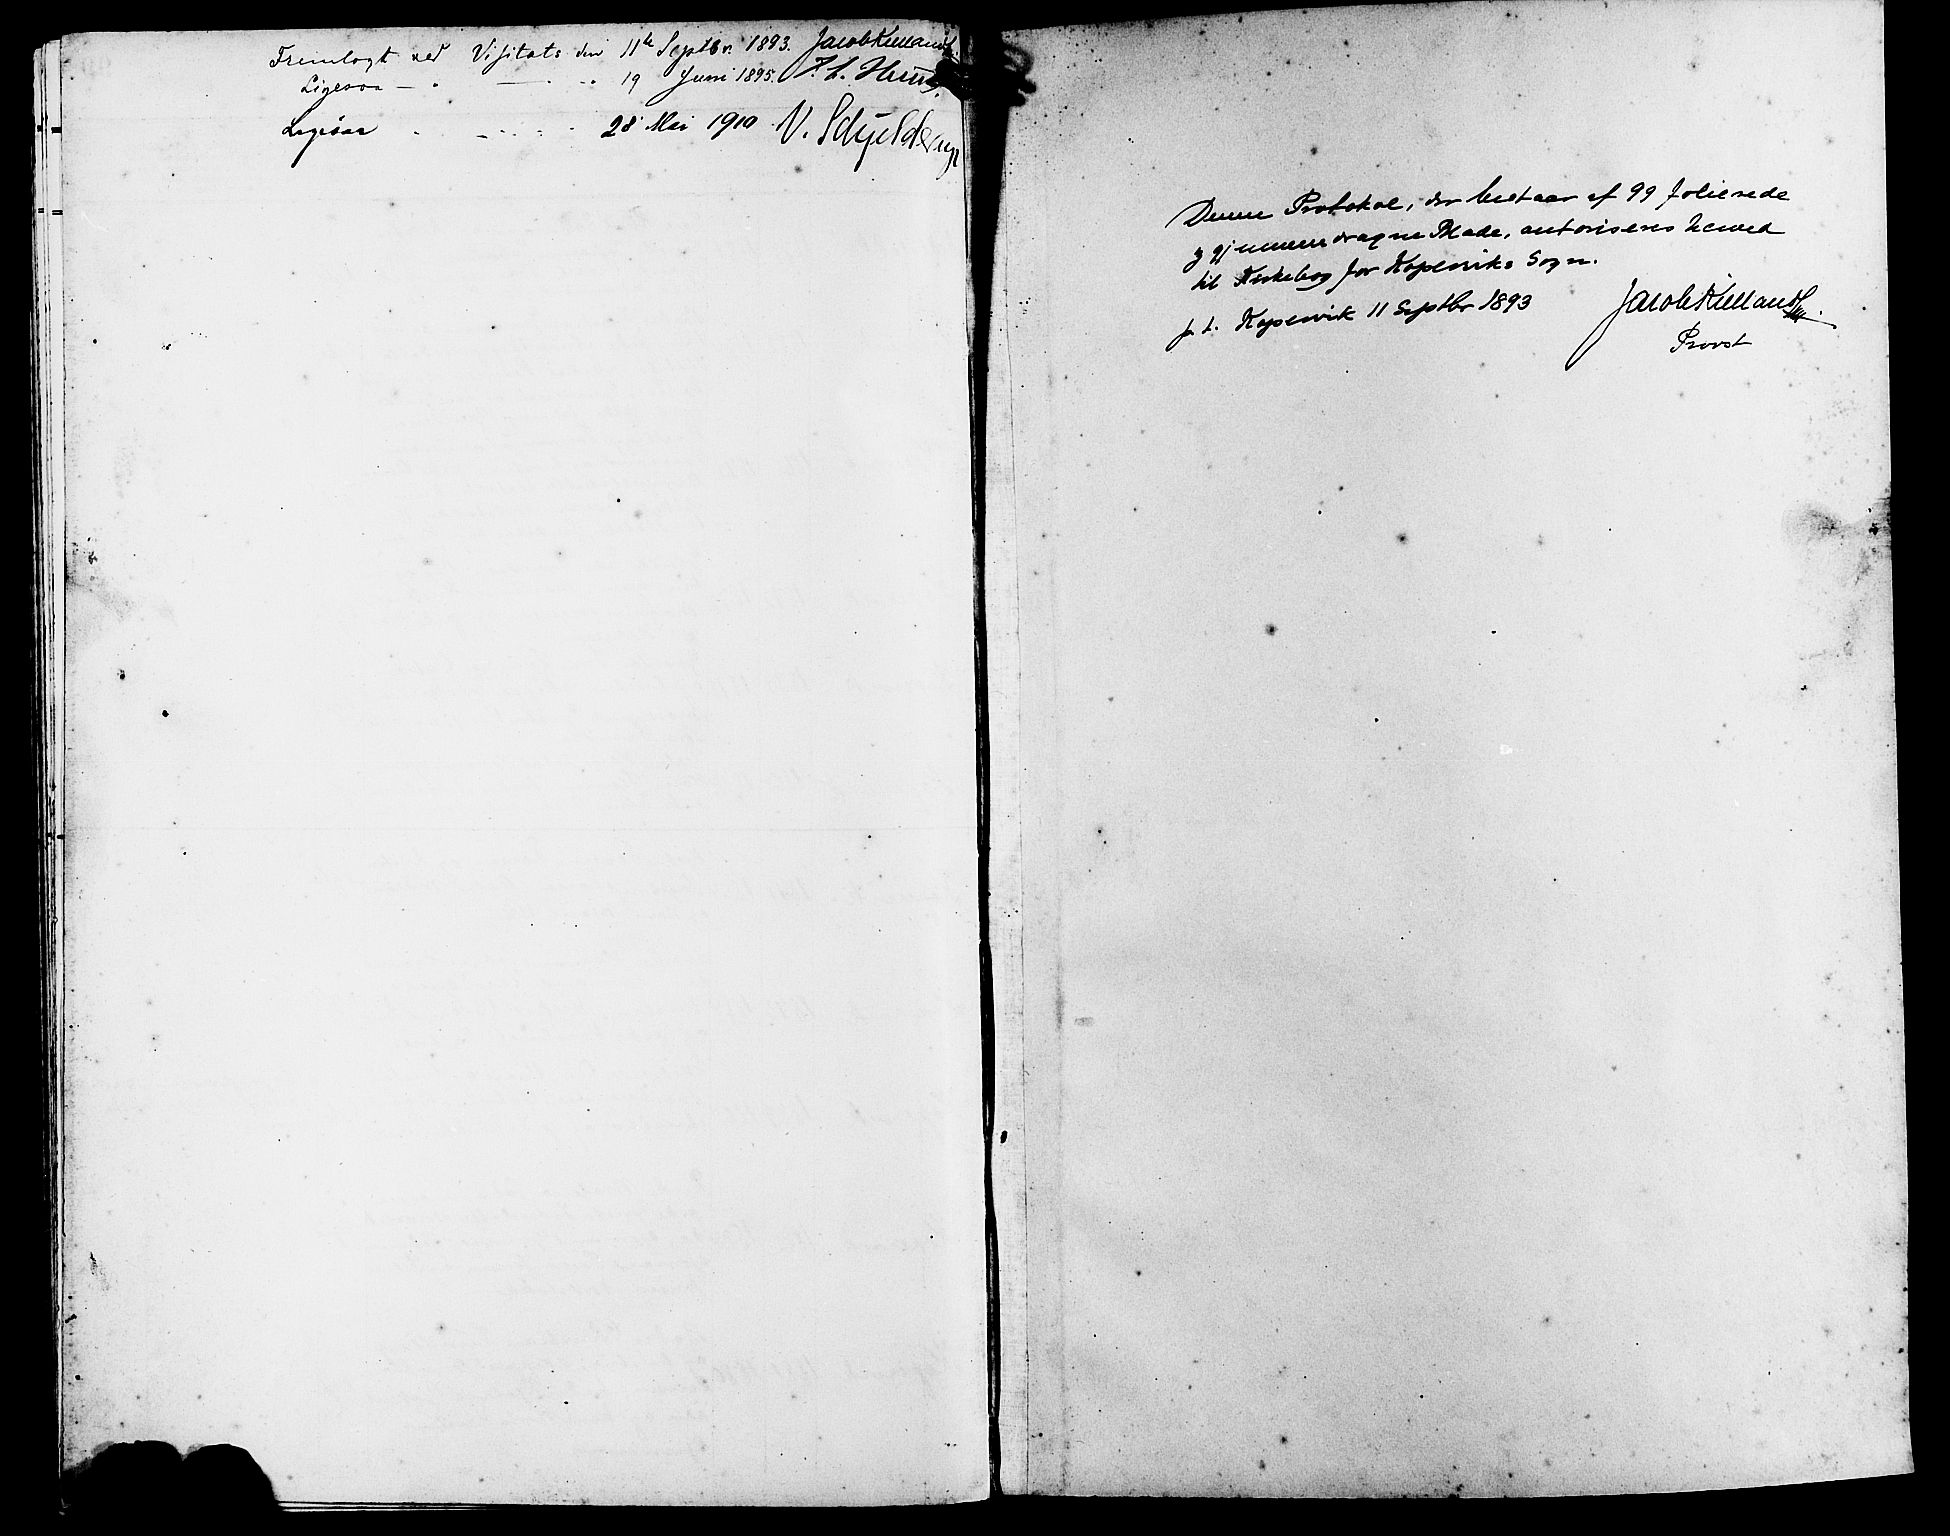 Fremlagt ved Visitats den 11te Septbr. 1893. Jacob Kielland
Ligesaa — " — " 19 Juni 1895.
Ligesaa " - - - - 28 Mai 1910 V. Schjelderup
Denne Protokol, der bestaar af 99 folierede
og gjennemdragne Blade, autoriseres herved
til Kirkebog for Kopervik Sogn.
p. t. Kopervik 11 Septbr 1893
Jacob Kielland
Provst